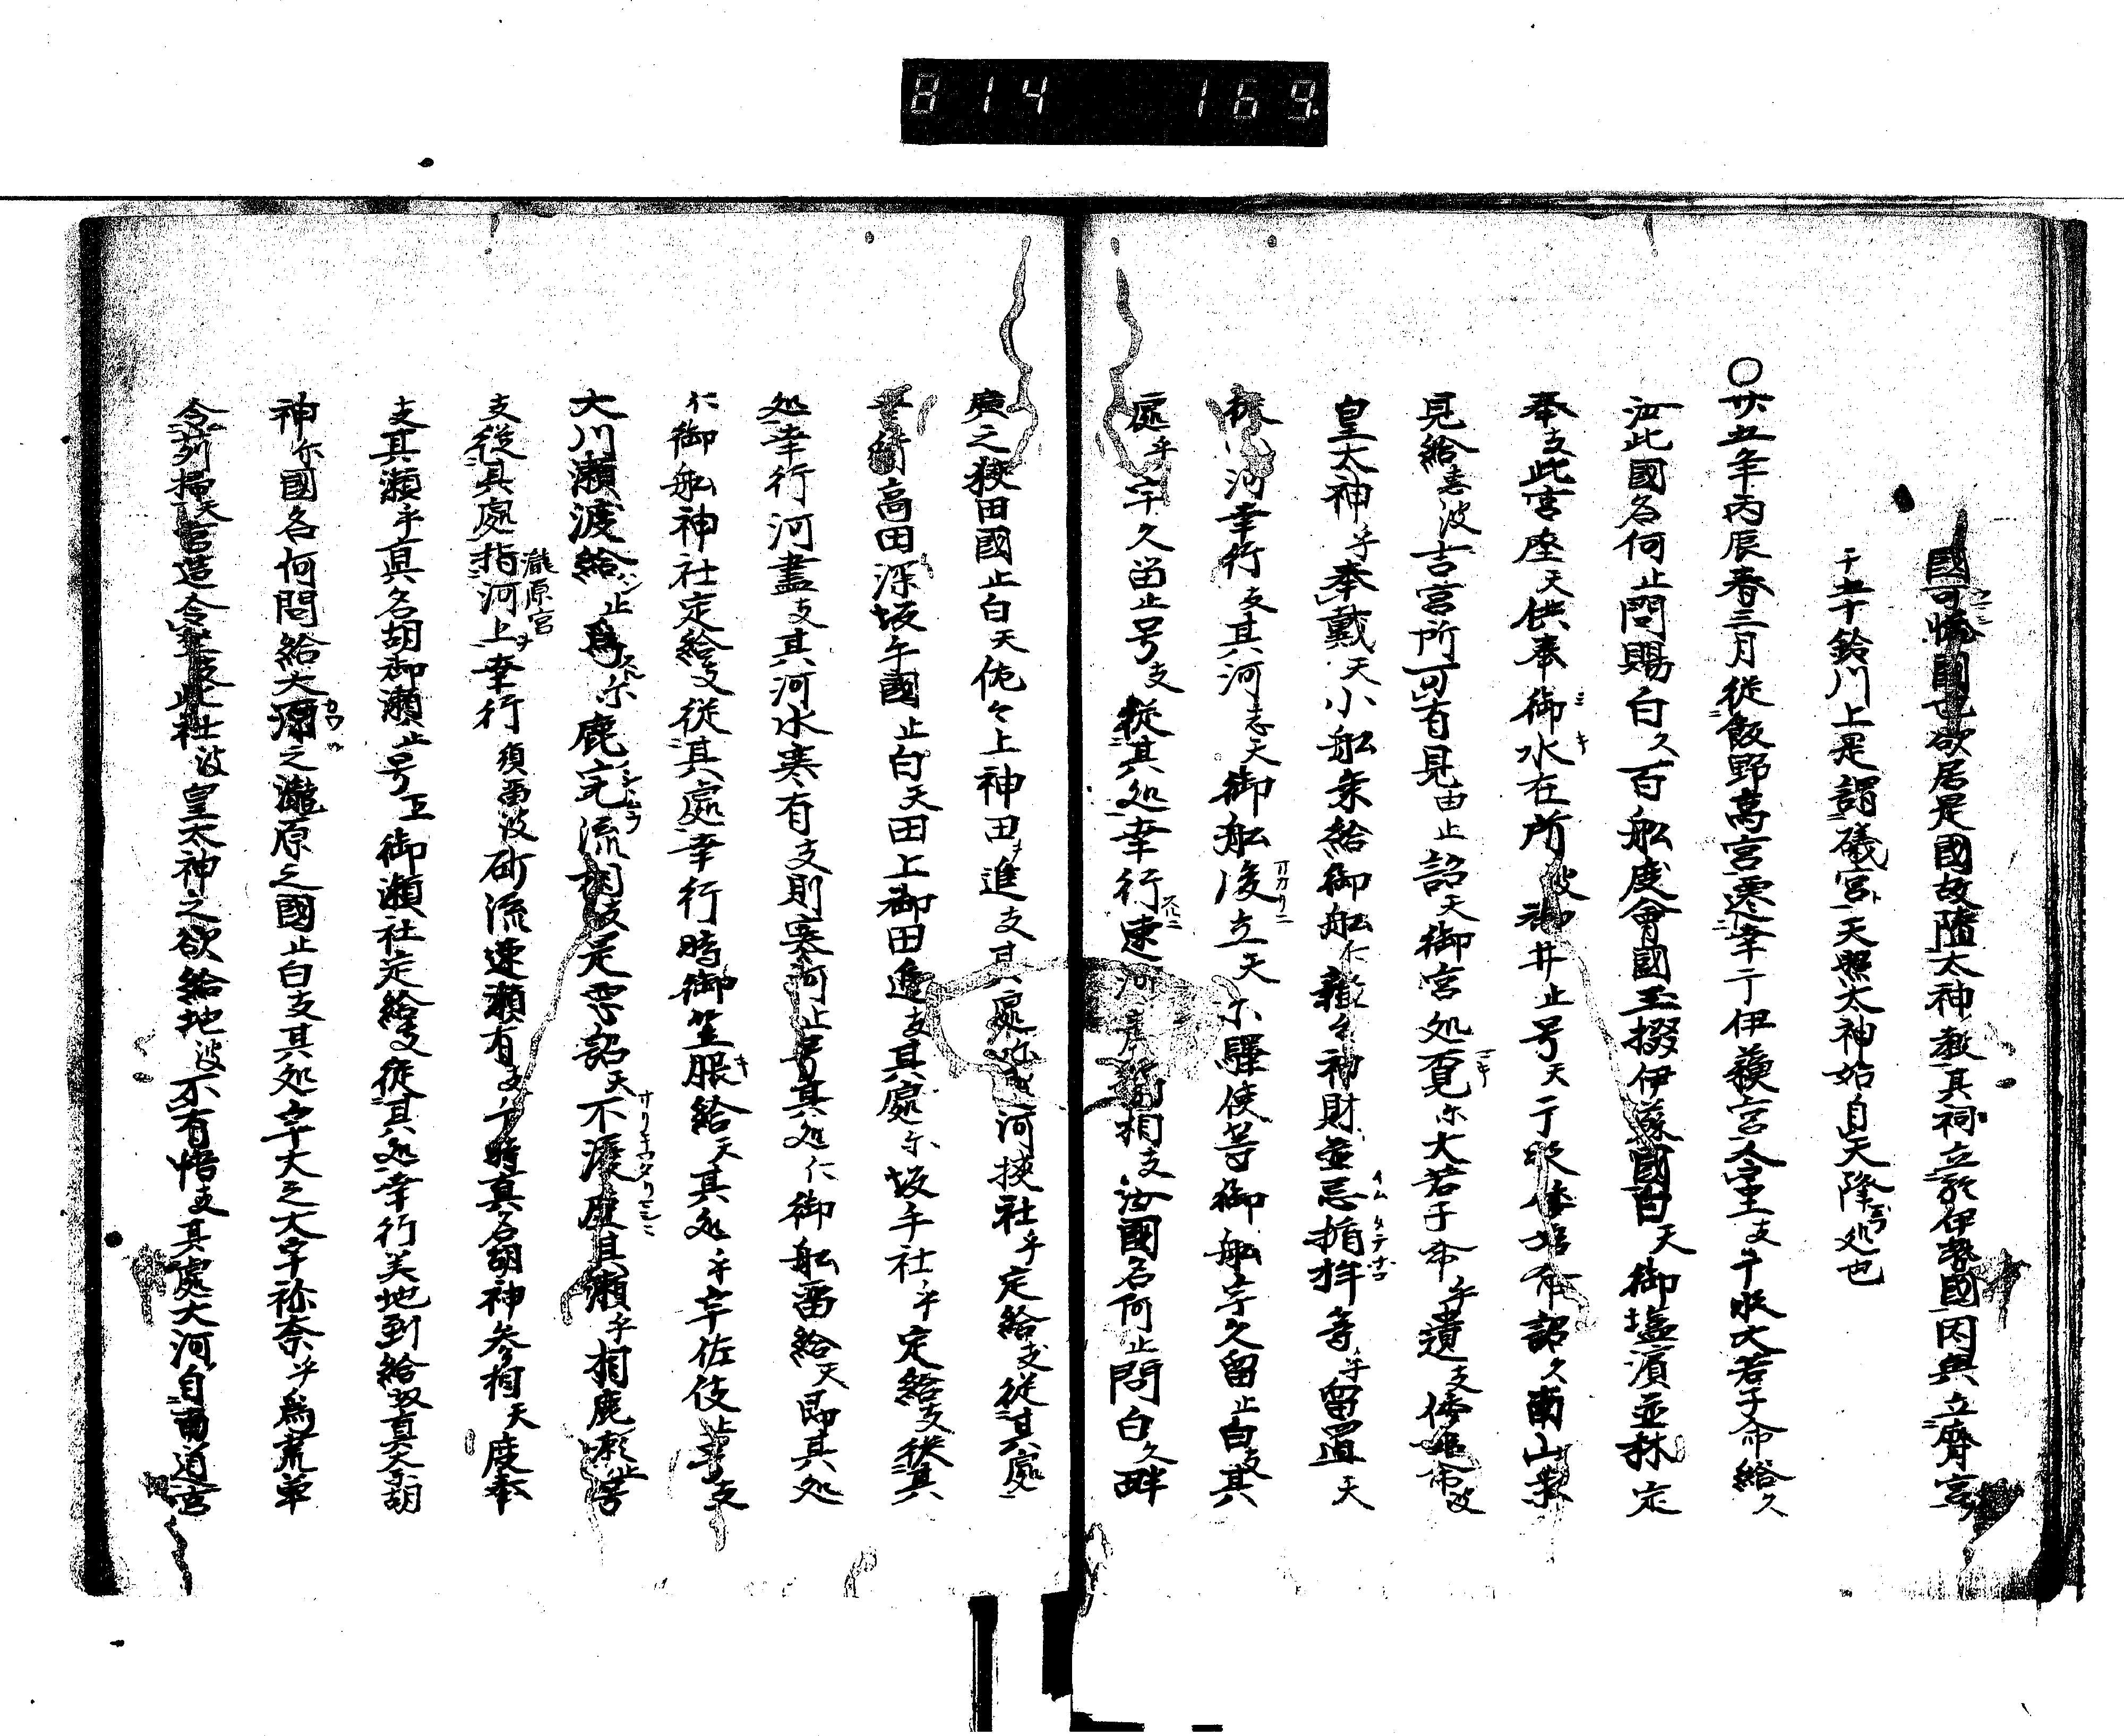 814 169.
國可怜國也欲居是國故隨太神教其祠立於伊勢國因興立齊宮
于五十鈴川上是謂礒宮天照太神始自天降処也
〇廿五年丙辰春三月從飯野高宮遷幸于伊蘓宮令坐支于時大若子命給久
汝此國名何止問賜白久百舩度會國玉掇伊蘓國白天御塩濱並林定
奉支此宮座天供奉御水在所波御井止号天于時倭姫命詔久南山末
見給恚波吉宮所可有見由止詔天御宮処覓尓大若子命乎遣支倭姫命波
皇太神乎奉戴天小舩乗給御舩仁雜々神財並忌楯桙等乎留置天
河幸行支其河志天御舩後立天尓驛使等御舩宇久留止白支其
處乎宇久留止号支從其処幸行速河彦詣相支汝國名何止問白久畔
廣之狹田國止白天佐々上神田ヲ進支其處速河狹社乎定給支從其處
幸行高田深坂手國止白天田上御田進支其處尓坂手社乎定給支從其
処幸行河盡支其河水寒有支則寒河止号其処仁御舩留給天即其処
仁御舩神社定給支從其處幸行時御笠服給天其処乎宇佐伎止号支
大川瀬渡給止爲尓鹿宍流相支是悪詔天不渡座其瀬乎相鹿瀬止号
支從其處指河上ヲ幸行須留波砂流速瀬有支于時真名胡神参相天度奉
瀧原宮
支其瀬乎真名胡御瀬止号天御瀬社定給支從其処幸行美地到給奴真名胡
神尓國名何問給大河之瀧原之國止白支其処宇大之大宇祢奈乎爲荒草
令苅掃天宮造令坐支此社波皇太神之欲給地波不有悟支其處大河自南道宮